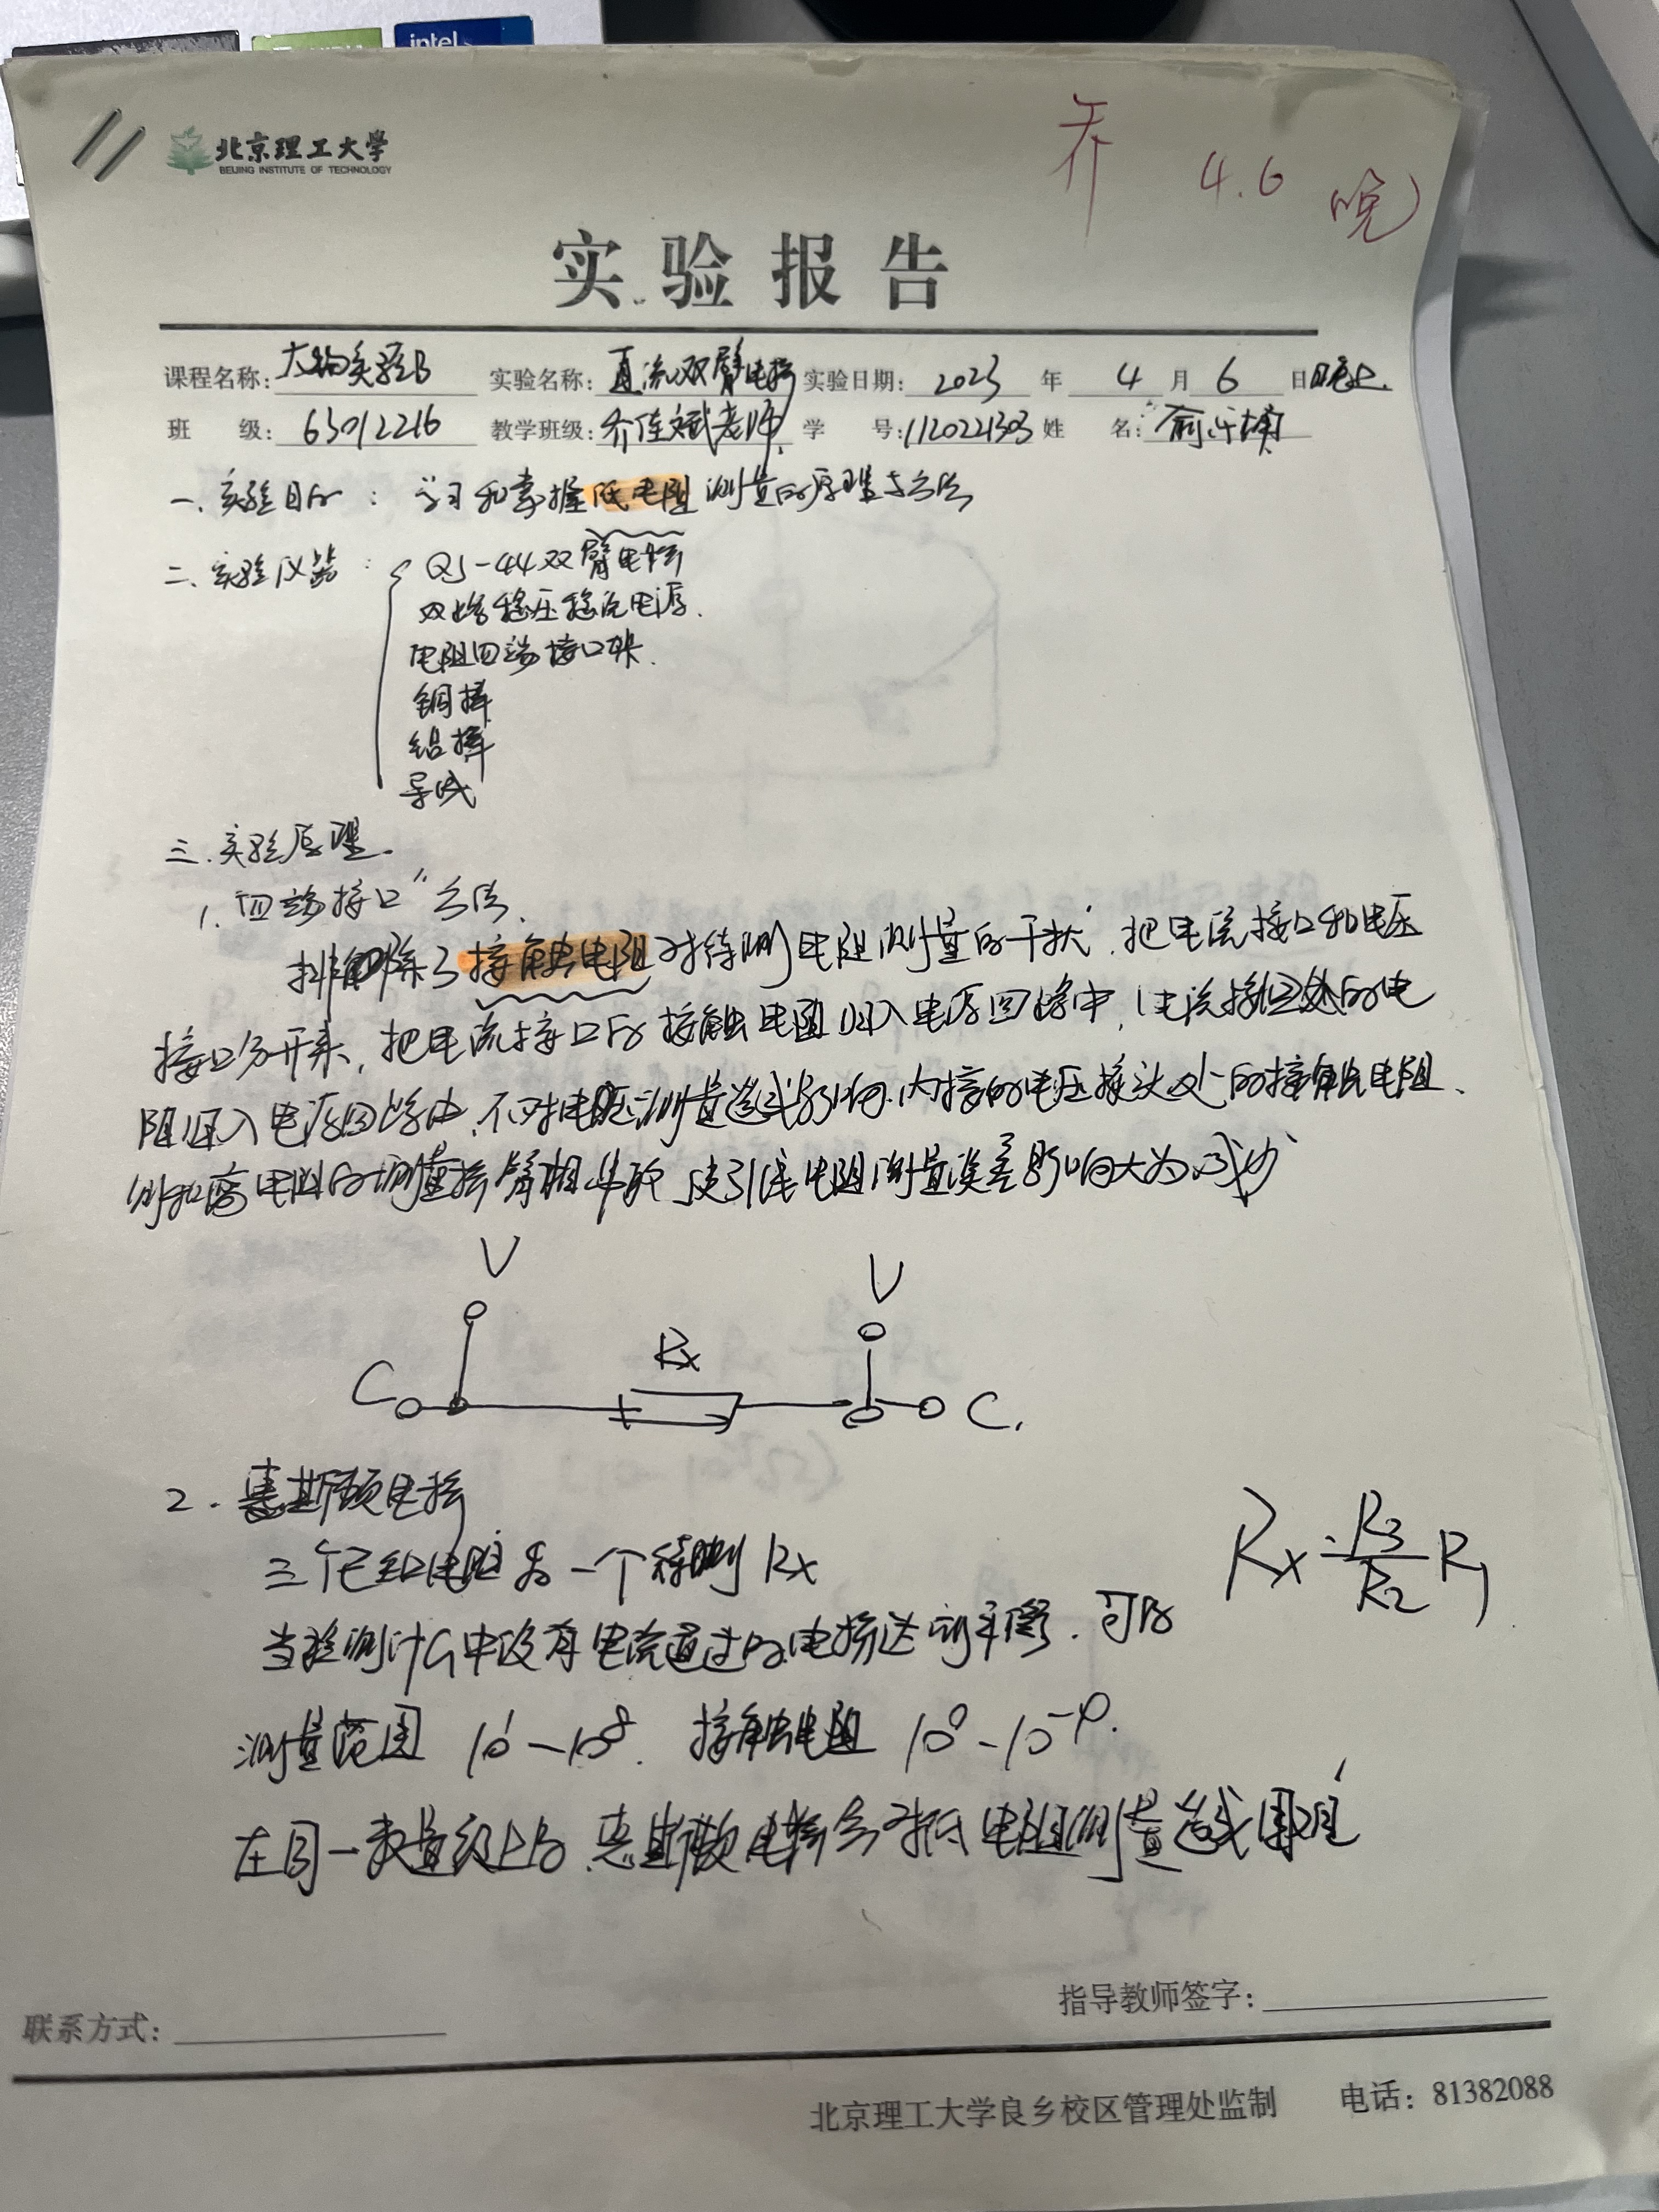 intel
北京理工大学
BEIJING INSTITUTE OF TECHNOLOGY
乔 4.6 晚
实验报告
课程名称: 大物实验B 实验名称: 直流双臂电桥 实验日期: 2023 年 4 月 6 日 晚上.
班 级: 63012216 教学班级: 乔连斌老师 学 号: 1120221303 姓 名: 俞
一、实验目的: 学习和掌握低电阻测量的原理与方法
二、实验仪器: QJ-44双臂电桥
双路稳压稳流电源.
电阻四端接口架.
铜棒
铝棒
导线
三.实验原理.
1. "四端接口"方法.
排除了接触电阻对待测电阻测量的干扰, 把电流接口和电压
接口分开来, 把电流接口的接触电阻归入电源回路中, 电流接口处的电
阻归入电源回路中, 不对电压测量造成影响. 内接的电压接头处的接触电阻、
则和高电阻的测量桥臂相串联 使引线电阻测量误差影响大为减少
V V
Rx
C C.
2. 惠斯顿电桥
三个已知电阻与一个待测Rx
Rx = R3/R2 R1
当检测计G中没有电流通过时电桥达到平衡. 可得
测量范围 10¹-10⁸. 接触电阻
在同一数量级上的 惠斯顿电桥会对低电阻测量造成困难
指导教师签字:
联系方式:
北京理工大学良乡校区管理处监制 电话: 81382088